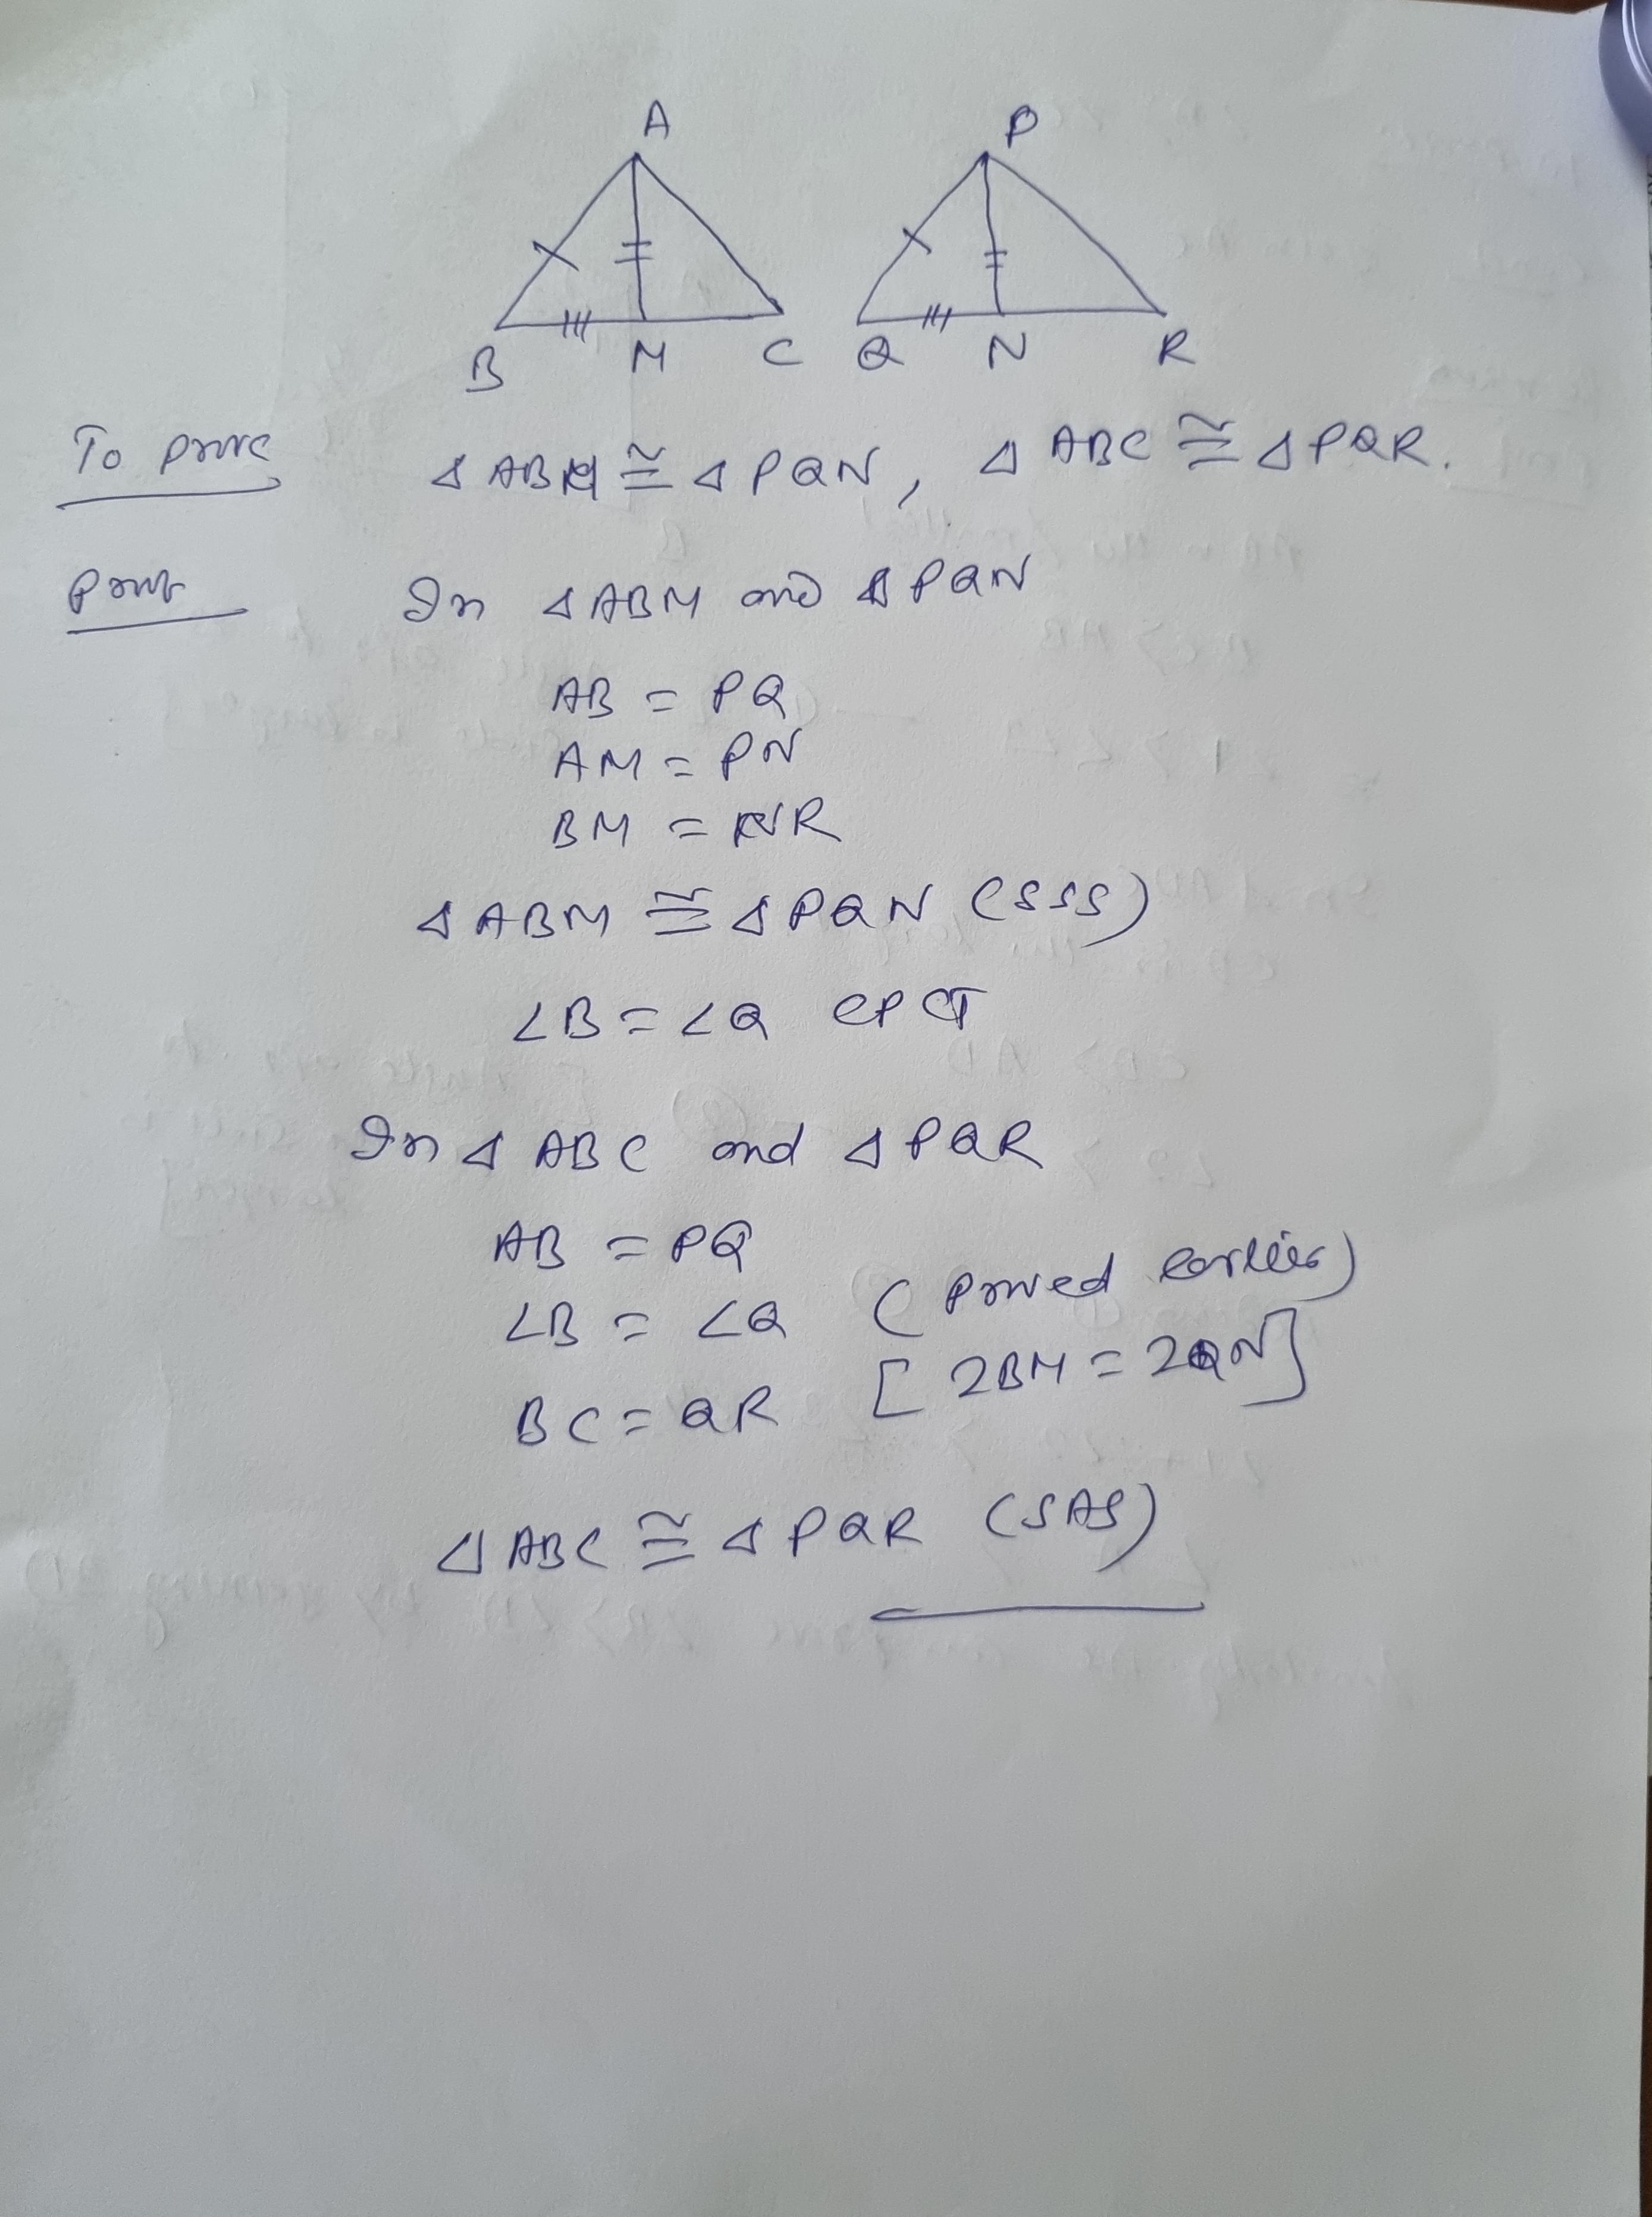 A P
B M C Q N R
To prove ΔABM ≅ ΔPQN, ΔABC ≅ ΔPQR.
Proof In ΔABM and ΔPQN
AB = PQ
AM = PN
BM = NR
ΔABM ≅ ΔPQN (SSS)
∠B = ∠Q CPCT
In ΔABC and ΔPQR
AB = PQ
∠B = ∠Q (Proved earlier)
BC = QR [2BM = 2QN]
ΔABC ≅ ΔPQR (SAS)